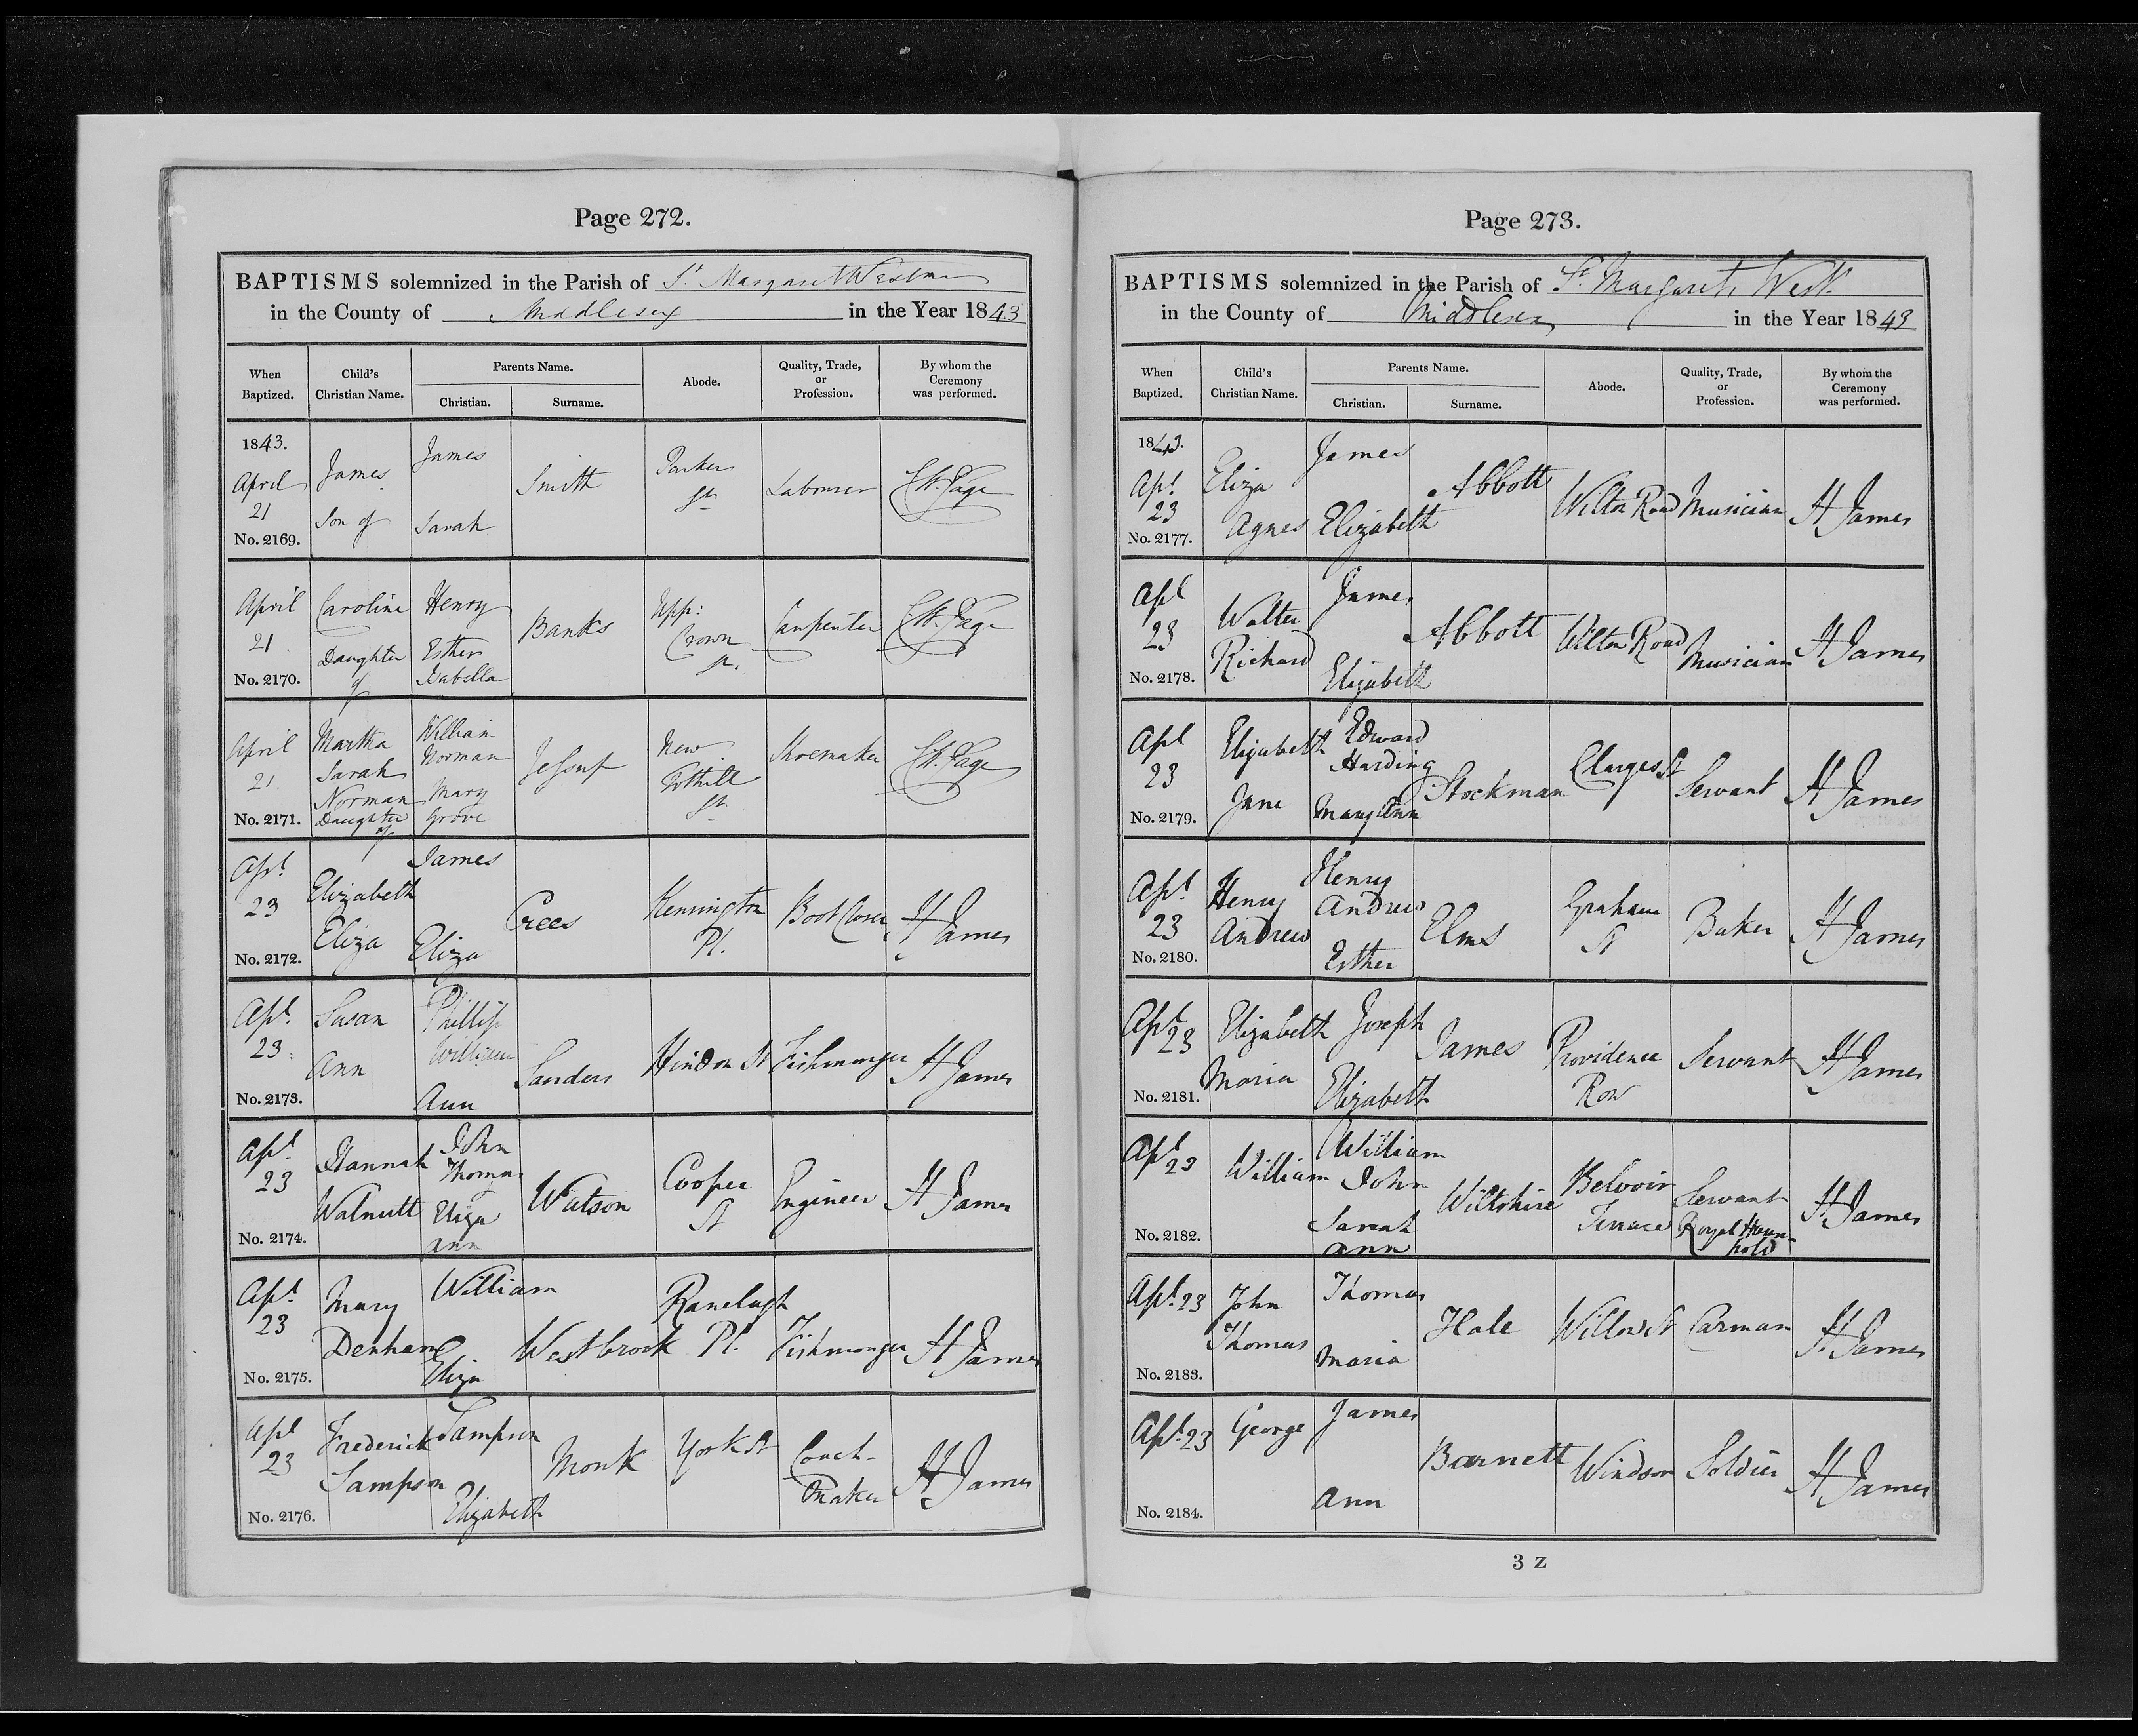 Page 272.
BAPTISMS solemnized in the Parish of St. Margaret Westmr
in the County of Middlesex in the Year 1843
When Baptized. Child's Christian Name. Parents Name. Christian. Surname. Abode. Quality, Trade, or Profession. By whom the Ceremony was performed.
1843. April 21 No. 2169. James Son of James Sarah Smith Parker St Labourer
April 21 No. 2170. Caroline Daughter of Henry Esther Isabella Banks Upp: Crown St. Carpenter
April 21 No. 2171. Martha Sarah Norman Daughter of William Norman Mary Grove Jessup New Tothill St Shoemaker
Apl. 23 No. 2172. Elizabeth Eliza James Eliza Crees Kensington Pl. Boot Closer H James
Apl. 23 No. 2173. Susan Ann Phillip William Ann Sanders Hindon St Fishmonger H James
Apl 23 No. 2174. Hannah Walnutt John Thomas Eliza Ann Watson Cooper St Engineer H James
Apl 23 No. 2175. Mary Denham William Eliza Westbrook Ranelagh Pl. Fishmonger H James
Apl 23 No. 2176. Frederick Sampson Sampson Elizabeth Monk York St Coach-Maker H James
Page 273.
BAPTISMS solemnized in the Parish of St. Margarets West
in the County of Middlesex in the Year 1843
When Baptized. Child's Christian Name. Parents Name. Christian. Surname. Abode. Quality, Trade, or Profession. By whom the Ceremony was performed.
1843. Apl. 23 No. 2177. Eliza Agnes James Elizabeth Abbott Wilton Road Musician H James
Apl 23 No. 2178. Walter Richard James Elizabeth Abbott Wilton Road Musician H James
Apl 23 No. 2179. Elizabeth Jane Edward Harding Mary Ann Stockman Clarges St Servant H James
Apl 23 No. 2180. Henry Andrew Henry Andrew Esther Elms Graham St Baker H James
Apl 23 No. 2181. Elizabeth Maria Joseph Elizabeth James Providence Row Servant H James
Apl 23 No. 2182. William William John Sarah Ann Wiltshire Belvoir Terrace Servant Royal Household H James
Apl. 23 No. 2183. John Thomas Thomas Maria Hale Willow St Carman H James
Apl. 23 No. 2184. George James Ann Barnett Windsor Soldier H James
3 Z